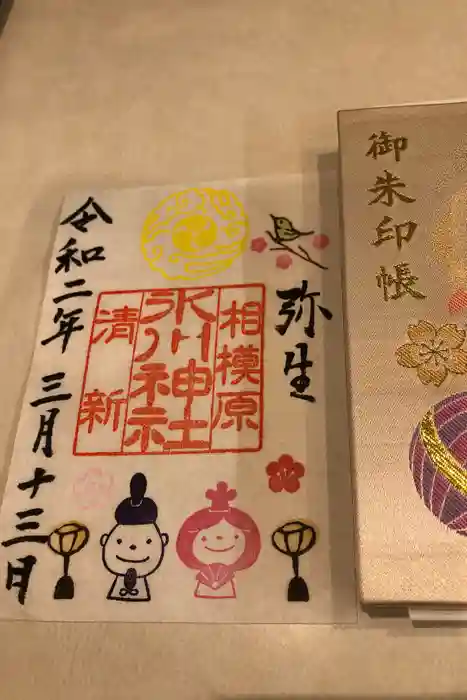 弥生
相模原
氷川神社
清新
令和二年 三月十三日
御朱印帳